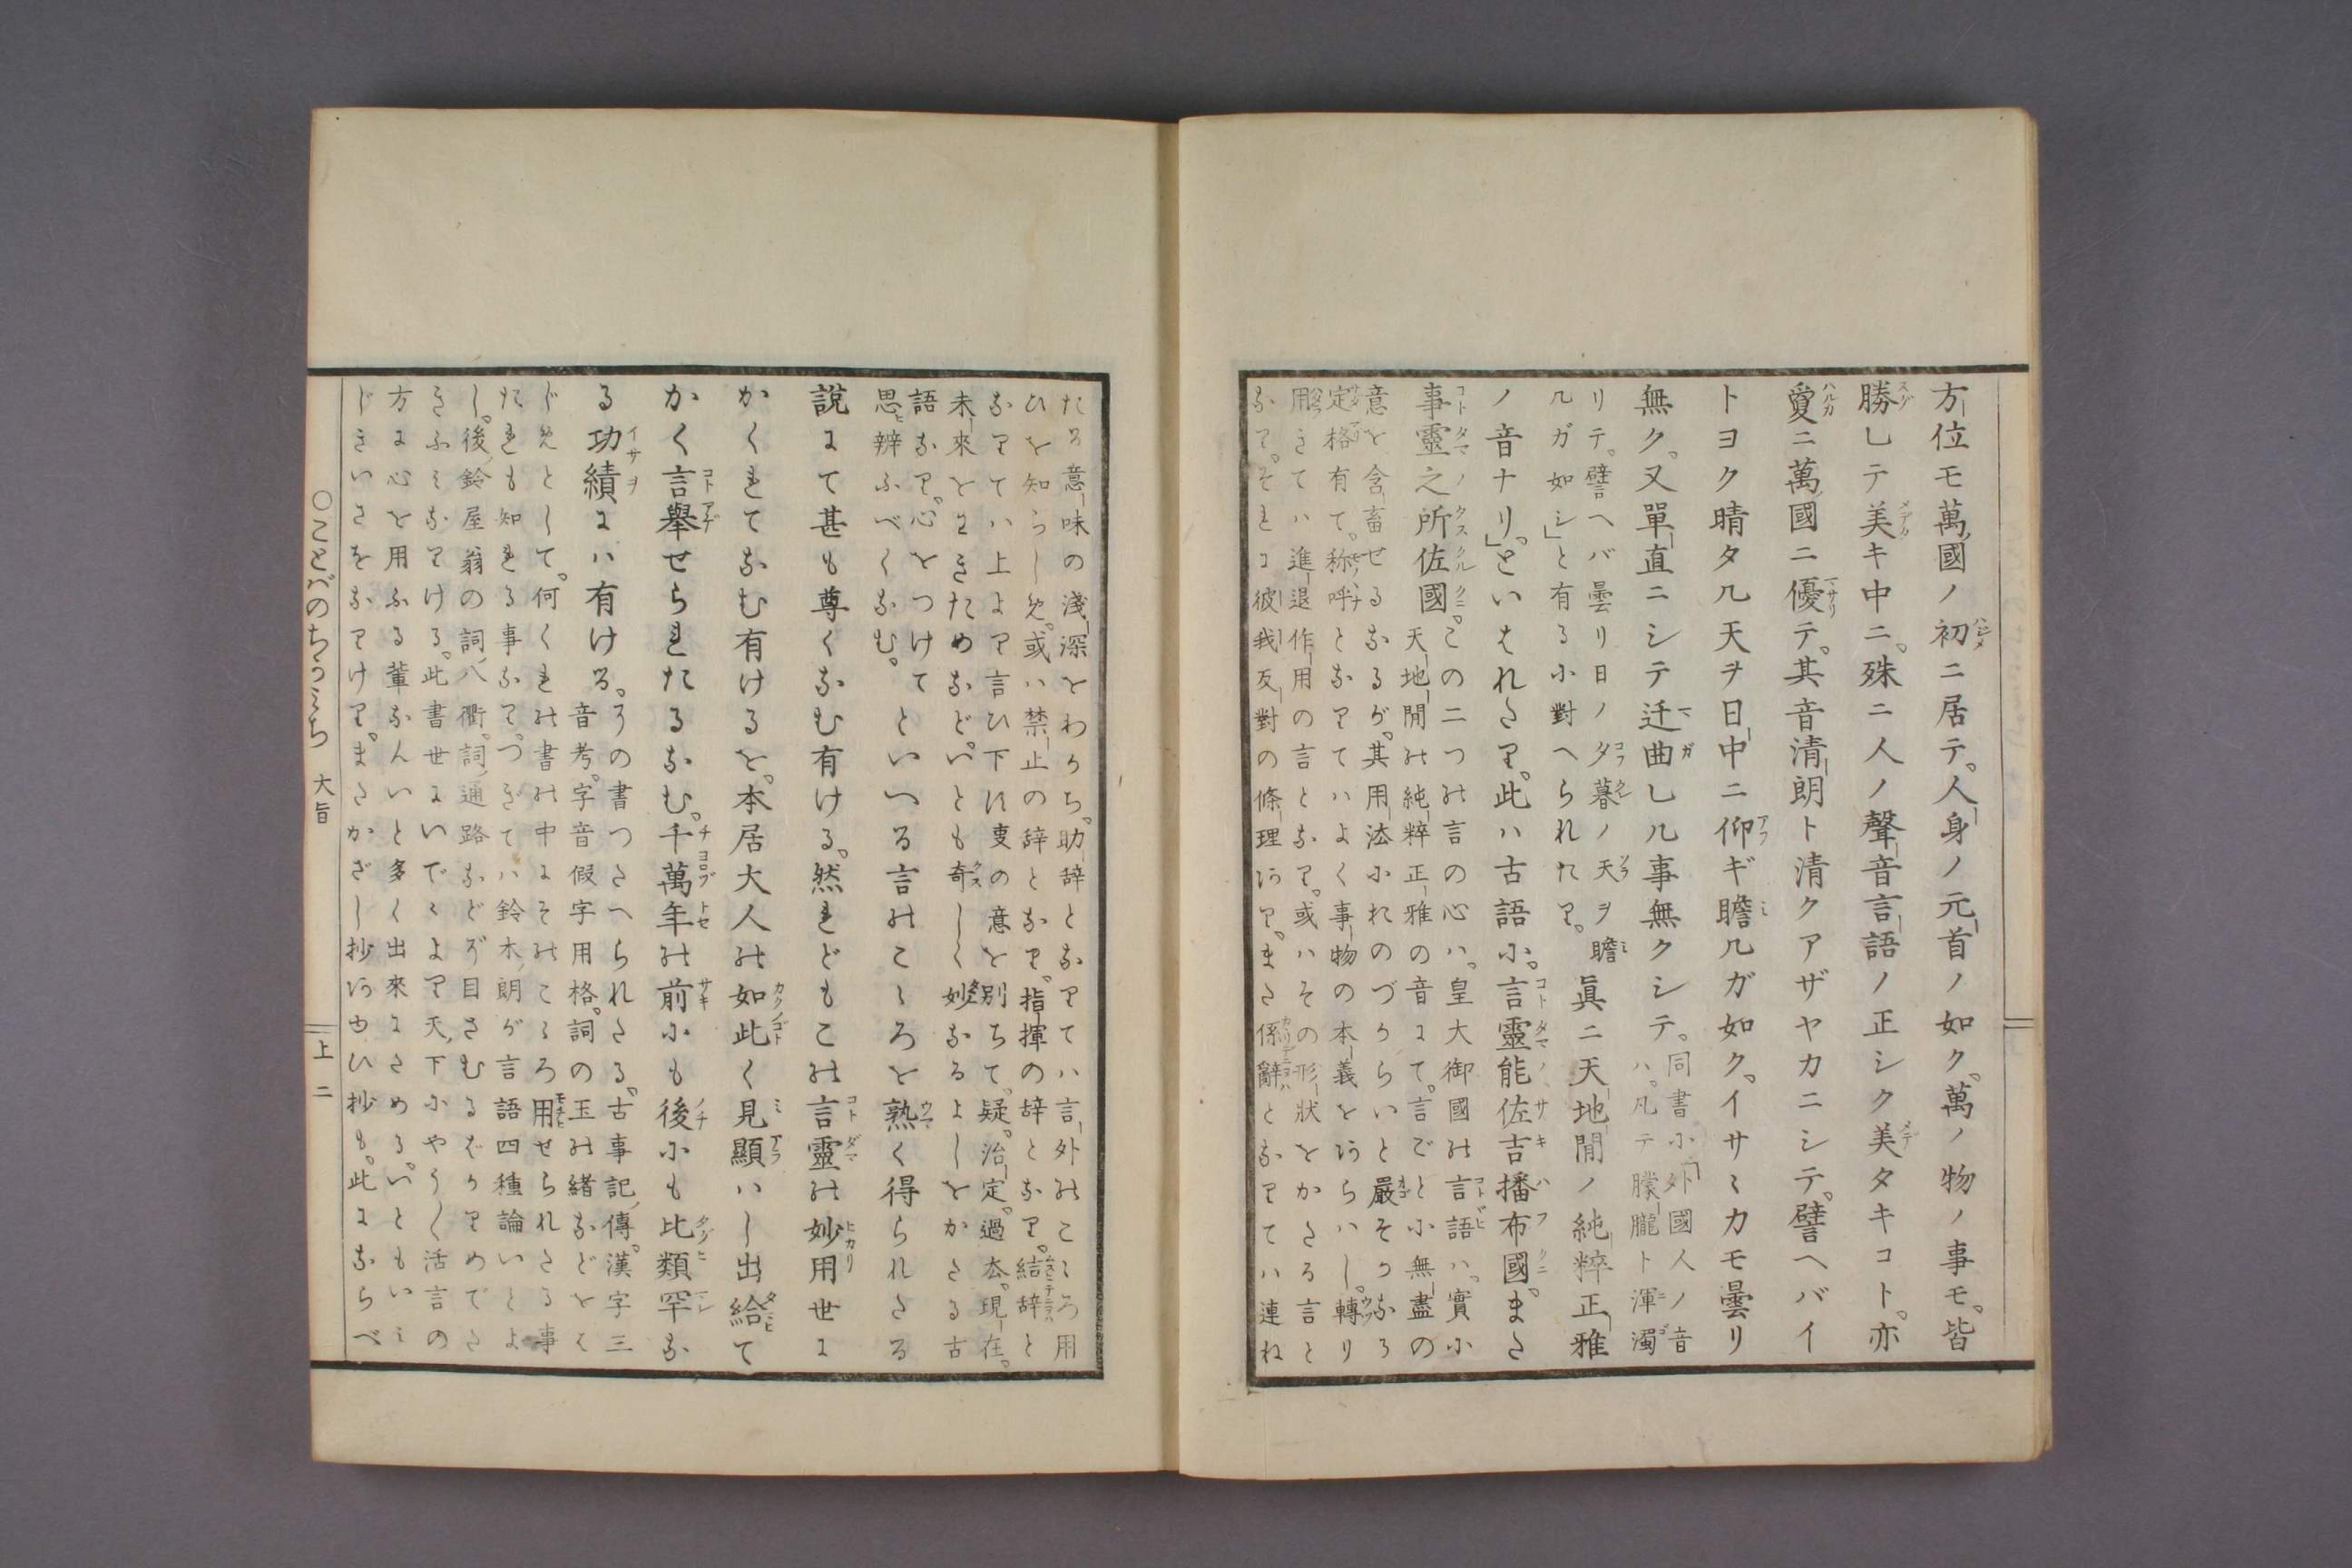 方位モ萬國ノ初ニ居テ。人身ノ元首ノ如ク。萬ノ物ノ事モ。皆
勝レテ美キ中ニ。殊ニ人ノ聲音言語ノ正シク美タキコト。亦
ニ萬國ニ優テ。其音清朗ト清クアザヤカニシテ。譬ヘバイ
トヨク晴タル天ヲ日中ニ仰ギ瞻ルガ如ク。イサヽカモ曇リ
無ク。又單直ニシテ迂曲レル事無クシテ。
同書に「外國人ノ音
ハ。凡テ朦朧ト渾濁
リテ。譬ヘバ曇リ日ノ夕暮ノ天ヲ瞻
ルガ如シ」と有るに對へられたり。
眞ニ天地間ノ純粹正雅
ノ音ナリ。」といはれたり。此ハ古語に。言靈能佐吉播布國。また
事靈之所佐國。
この二つの言の心ハ。皇大御國の言語ハ。實に
天地間の純粹正雅の音にて。言ごとに無盡の
意を含畜せるなるが。其用法おのづからいと嚴そかなる
定格有て。称呼となりてハよく事物の本義をあらハし。轉り
用きてハ進退作用の言となり。或ハその形狀をかたる言と
なり。そを彼我反對の條理あり。また係辭となりてハ連ね
たる意味の淺深をわかち。助辞となりてハ言外のこゝろ用
ひを知らしめ。或ハ禁止の辞となり。指揮の辞となり。結辞と
なりてハ上より言ひ下に叓の意を別ちて。疑。治定。過去。現在。
未來をときさだめなど。いとも奇しく妙なるよしをかたる古
語なり。心をつけて
思辨ふべくなむ。
といへる言のこゝろを熟く得られたる
說にて甚も尊くなむ有ける。然れどもこの言靈の妙用世に
かくれてなむ有けるを。本居大人の如此く見顯ハし出給て
かく言擧せられたるなむ。千萬年の前にも後にも比類罕な
る功績にハ有ける。
この書つたへられたる。古事記傳。漢字三
音考。字音假字用格。詞の玉の緒などをは
じめとして。何くれの書の中にそのこゝろ用せられたる事
たれも知れる事なり。つぎてハ鈴木朗が言語四種論いとよ
し。後鈴屋翁の詞八衢。詞通路などぞ目さむるばかりめでた
きふみなりける。此書世にいでゝより天下にやう〳〵活言の
方に心を用ふる輩なんいと多く出來にたる。いともいみ
じきいさをなりけり。またかざし抄あゆひ抄も。此にならべ
○ことばのちかみち　大旨　上　二